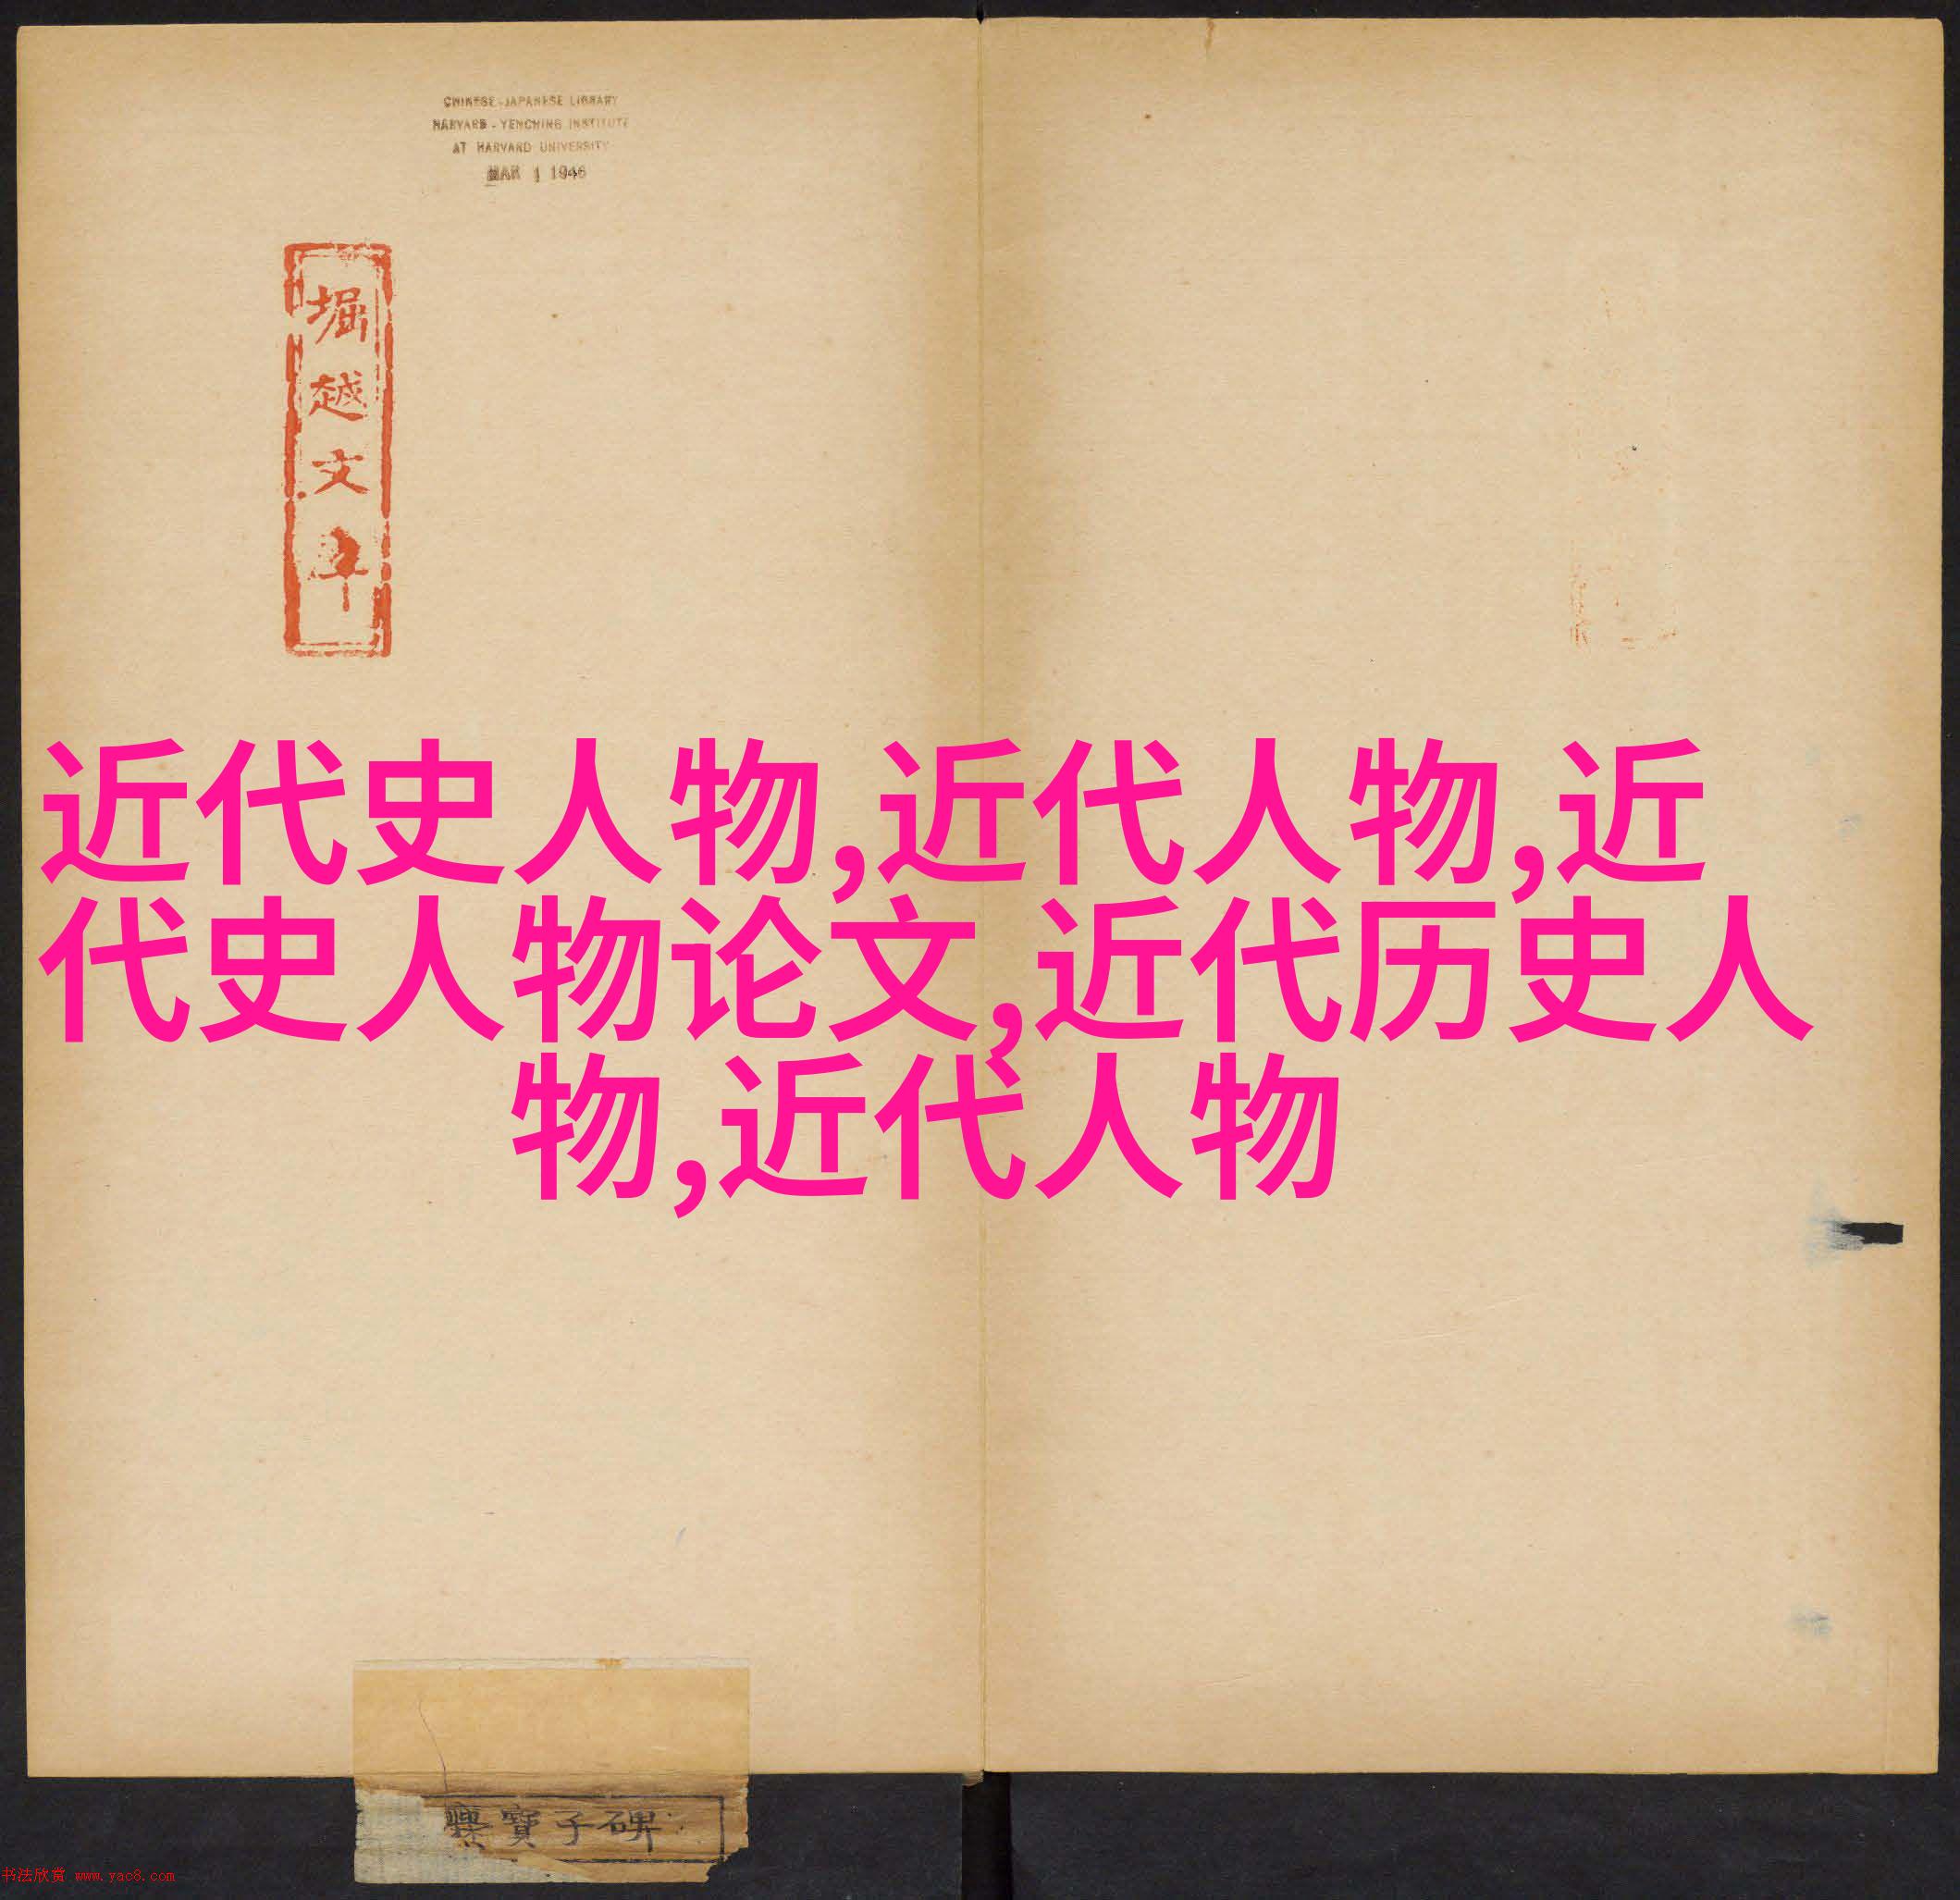 CHINESE-JAPANESE LIBRARY
HARVARD-YENCHING INSTITUTE
AT HARVARD UNIVERSITY
MAR 1 1946
堀越文
近代史人物,近代人物,近
代史人物论文,近代历史人
物,近代人物
爨寶子碑
书法欣赏 www.yac8.com